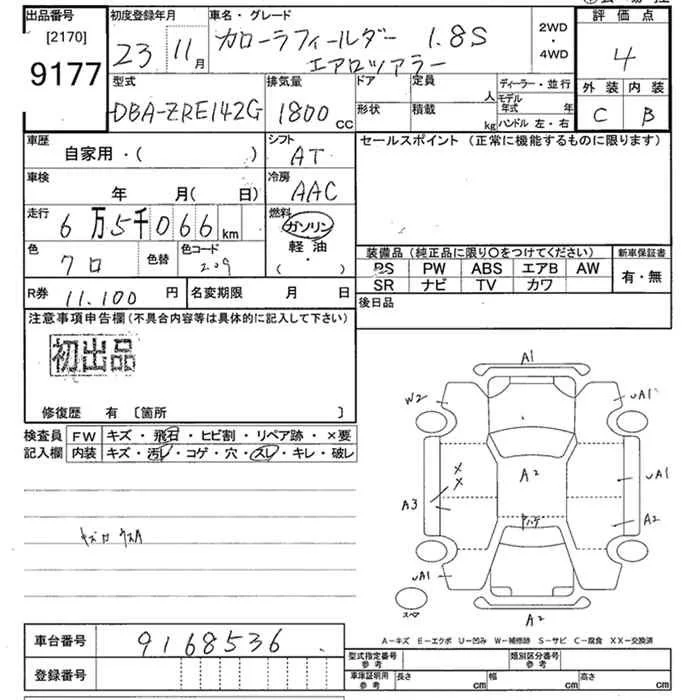 出品番号
[2170]
9177
初度登録年月
23 11月
車名・グレード
カローラフィールダー 1.8S
エアロツアラー
2WD
・
4WD
評価点
4
外装 内装
C B
型式
DBA-ZRE142G
排気量
1800 CC
ドア 定員 人
形状 積載 kg
ディーラー・並行
モデル年式 年
ハンドル 左・右
車歴
自家用・( )
シフト
AT
セールスポイント (正常に機能するものに限ります)
車検
年 月( 日)
冷房
AAC
走行
6万5千066km
燃料
ガソリン
軽油
( ・ )
色
クロ
色替
色コード
209
装備品(純正品に限り○をつけてください)
PS PW ABS エアB AW
SR ナビ TV カワ
新車保証書
有・無
R券 11.100 円
名変期限 月 日
後日品
注意事項申告欄(不具合内容等は具体的に記入して下さい)
初出品
修復歴 有 〔箇所 〕
検査員
記入欄
FW キズ・飛石・ヒビ割・リペア跡・×要
内装 キズ・汚レ・コゲ・穴・スレ・キレ・破レ
A1
W2
uA1
A2
A3
uA1
A2
uA1
A2
スペア
A-キズ E-エクボ U-凹み W-補修跡 S-サビ C-腐食 XX-交換済
車台番号 9168536
登録番号
型式指定番号
参考
類別区分番号
参考
車庫証明用
参考
長さ cm 幅 cm 高さ cm